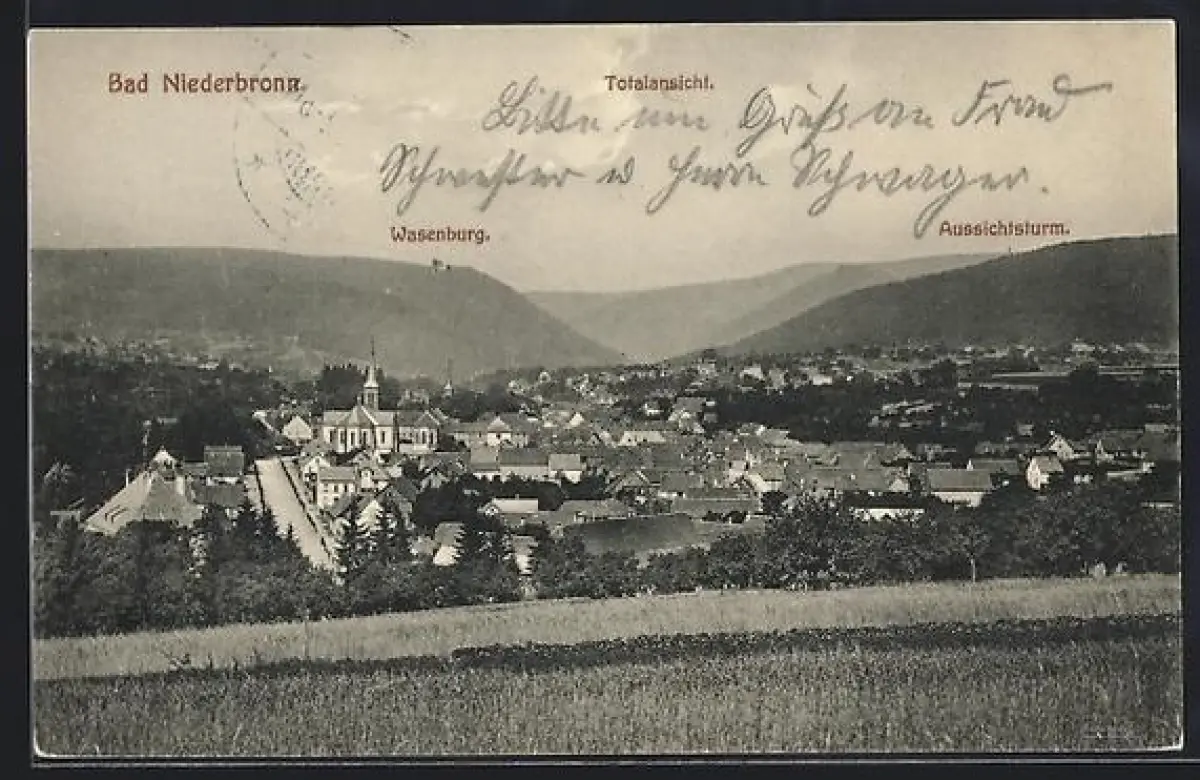 Bad Niederbronn.
Totalansicht.
Bitte um Gruß an Frau
Schwester u Herrn Schwager.
Wasenburg.
Aussichtsturm.